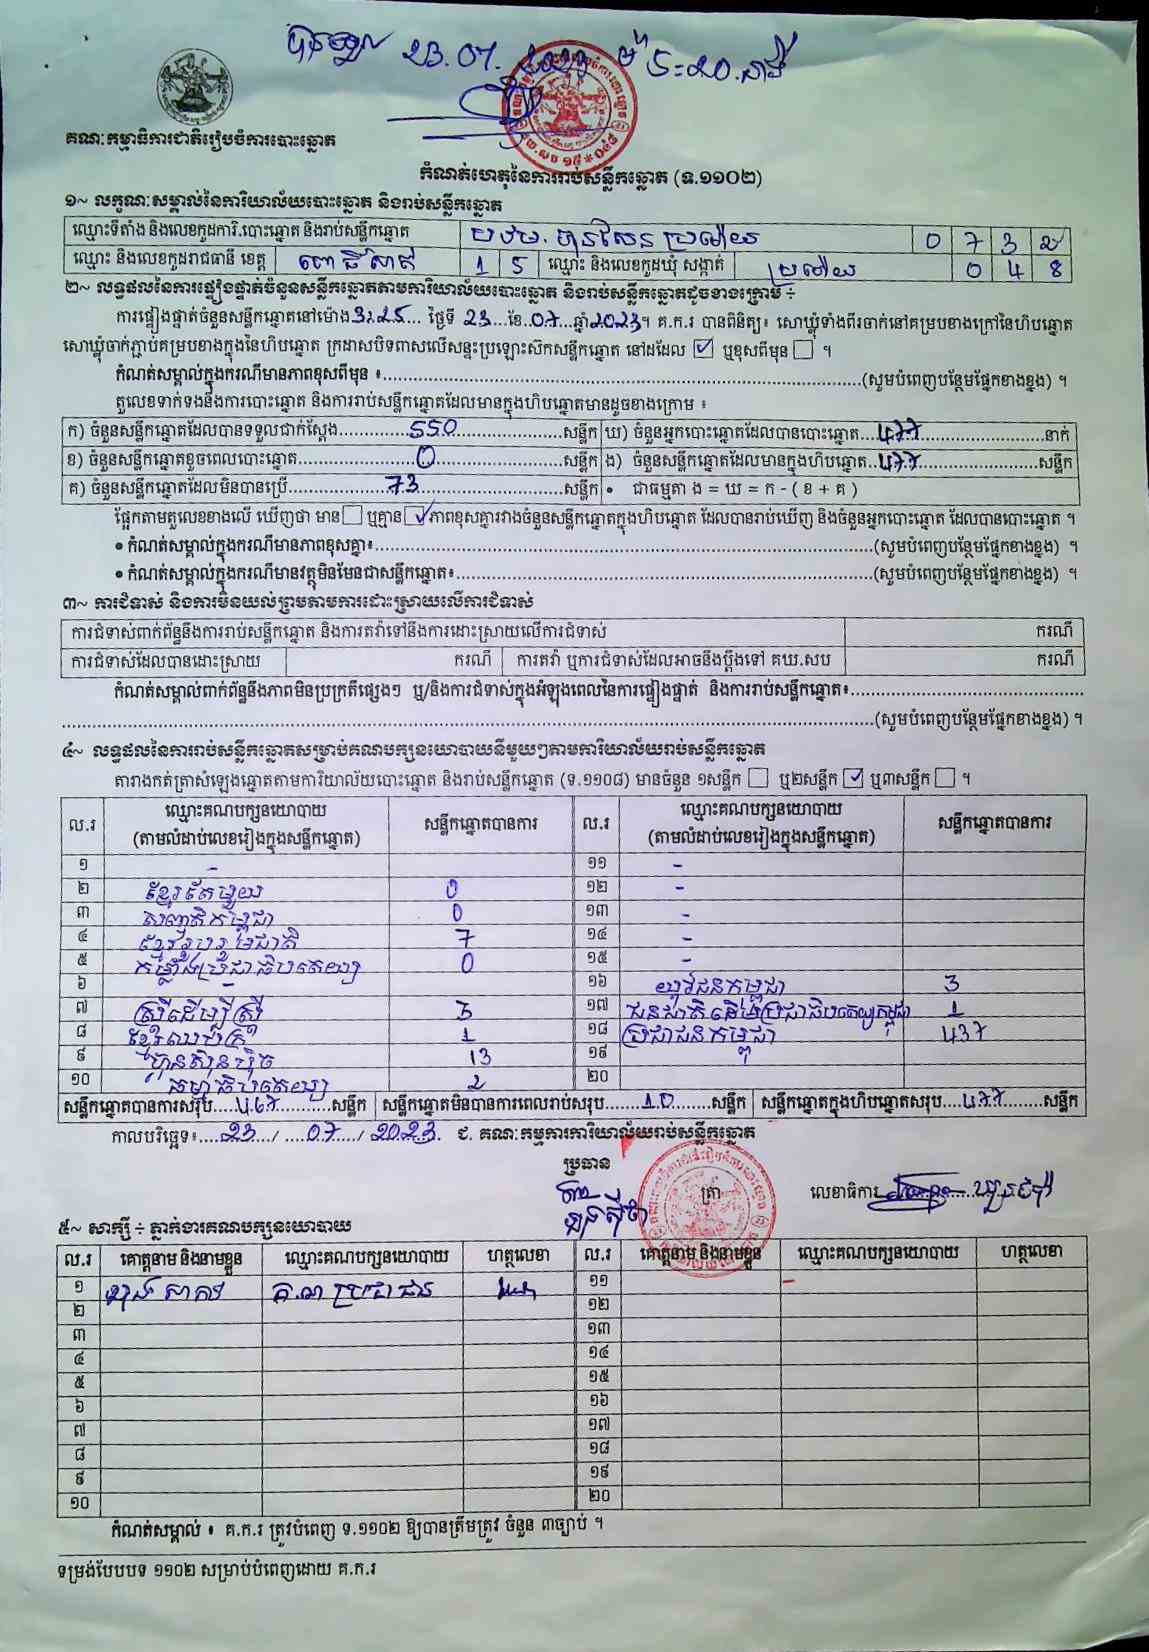 បានឃើញ 23.07.2023 ម៉ 5:20 នាទី
គណៈកម្មាធិការជាតិរៀបចំការបោះឆ្នោត
កំណត់ហេតុនៃការរាប់សន្លឹកឆ្នោត (ទ.១១០២)
១~ លក្ខណៈសម្គាល់នៃការិយាល័យបោះឆ្នោត និងរាប់សន្លឹកឆ្នោត
ឈ្មោះទីតាំង និងលេខកូដការិ.បោះឆ្នោត និងរាប់សន្លឹកឆ្នោត បឋម. ហ៊ុនសែន ប្រម៉ោយ 0 7 3 2
ឈ្មោះ និងលេខកូដរាជធានី ខេត្ត ពោធិ៍សាត់ 1 5 ឈ្មោះ និងលេខកូដឃុំ សង្កាត់ ប្រម៉ោយ 0 4 8
២~ លទ្ធផលនៃការផ្ទៀងផ្ទាត់ចំនួនសន្លឹកឆ្នោតតាមការិយាល័យបោះឆ្នោត និងរាប់សន្លឹកឆ្នោតដូចខាងក្រោម ÷
ការផ្ទៀងផ្ទាត់ចំនួនសន្លឹកឆ្នោតនៅម៉ោង 3:25 ថ្ងៃទី 23 ខែ 07 ឆ្នាំ 2023 ។ គ.ក.រ បានពិនិត្យ៖ សោឃ្លុំទាំងពីរចាក់នៅគម្របខាងក្រៅនៃហិបឆ្នោត
សោឃ្លុំចាក់ភ្ជាប់គម្របខាងក្នុងនៃហិបឆ្នោត ក្រដាសបិទពាសលើសន្ទះប្រឡោះស៊កសន្លឹកឆ្នោត នៅដដែល ☑ ឬខុសពីមុន ☐ ។
កំណត់សម្គាល់ក្នុងករណីមានភាពខុសពីមុន ៖ (សូមបំពេញបន្ថែមផ្នែកខាងខ្នង) ។
តួលេខទាក់ទងនឹងការបោះឆ្នោត និងការរាប់សន្លឹកឆ្នោតដែលមានក្នុងហិបឆ្នោតមានដូចខាងក្រោម ៖
ក) ចំនួនសន្លឹកឆ្នោតដែលបានទទួលជាក់ស្តែង 550 សន្លឹក ឃ) ចំនួនអ្នកបោះឆ្នោតដែលបានបោះឆ្នោត 477 នាក់
ខ) ចំនួនសន្លឹកឆ្នោតខូចពេលបោះឆ្នោត 0 សន្លឹក ង) ចំនួនសន្លឹកឆ្នោតដែលមានក្នុងហិបឆ្នោត 477 សន្លឹក
គ) ចំនួនសន្លឹកឆ្នោតដែលមិនបានប្រើ 73 សន្លឹក • ជាធម្មតា ង = ឃ = ក - ( ខ + គ )
ផ្អែកតាមតួលេខខាងលើ ឃើញថា មាន ☐ ឬគ្មាន ☑ ភាពខុសគ្នារវាងចំនួនសន្លឹកឆ្នោតក្នុងហិបឆ្នោត ដែលបានរាប់ឃើញ និងចំនួនអ្នកបោះឆ្នោត ដែលបានបោះឆ្នោត ។
• កំណត់សម្គាល់ក្នុងករណីមានភាពខុសគ្នា៖ (សូមបំពេញបន្ថែមផ្នែកខាងខ្នង) ។
• កំណត់សម្គាល់ក្នុងករណីមានវត្ថុមិនមែនជាសន្លឹកឆ្នោត៖ (សូមបំពេញបន្ថែមផ្នែកខាងខ្នង) ។
៣~ ការជំទាស់ និងការមិនយល់ព្រមតាមការដោះស្រាយលើការជំទាស់
ការជំទាស់ពាក់ព័ន្ធនឹងការរាប់សន្លឹកឆ្នោត និងការតវ៉ាទៅនឹងការដោះស្រាយលើការជំទាស់ ករណី
ការជំទាស់ដែលបានដោះស្រាយ ករណី ការតវ៉ា ឬការជំទាស់ដែលអាចនឹងប្តឹងទៅ គឃ.សប ករណី
កំណត់សម្គាល់ពាក់ព័ន្ធនឹងភាពមិនប្រក្រតីផ្សេងៗ ឬ/និងការជំទាស់ក្នុងអំឡុងពេលនៃការផ្ទៀងផ្ទាត់ និងការរាប់សន្លឹកឆ្នោត៖
(សូមបំពេញបន្ថែមផ្នែកខាងខ្នង) ។
៤~ លទ្ធផលនៃការរាប់សន្លឹកឆ្នោតសម្រាប់គណបក្សនយោបាយនីមួយៗតាមការិយាល័យរាប់សន្លឹកឆ្នោត
តារាងកត់ត្រាសំឡេងឆ្នោតតាមការិយាល័យបោះឆ្នោត និងរាប់សន្លឹកឆ្នោត (ទ.១១០៨) មានចំនួន ១សន្លឹក ☐ ឬ២សន្លឹក ☑ ឬ៣សន្លឹក ☐ ។
ល.រ ឈ្មោះគណបក្សនយោបាយ សន្លឹកឆ្នោតបានការ ល.រ ឈ្មោះគណបក្សនយោបាយ សន្លឹកឆ្នោតបានការ
(តាមលំដាប់លេខរៀងក្នុងសន្លឹកឆ្នោត) (តាមលំដាប់លេខរៀងក្នុងសន្លឹកឆ្នោត)
១ - ១១ -
២ ខ្មែរតែមួយ 0 ១២ -
៣ សញ្ជាតិកម្ពុជា 0 ១៣ -
៤ ខ្មែររួបរួមជាតិ 7 ១៤ -
៥ កម្លាំងប្រជាធិបតេយ្យ 0 ១៥ -
៦ - ១៦ យុវជនកម្ពុជា 3
៧ ស្ត្រីដើម្បីស្ត្រី 3 ១៧ ជនជាតិដើមប្រជាធិបតេយ្យកម្ពុជា 1
៨ ខ្មែរឈប់ក្រ 1 ១៨ ប្រជាជនកម្ពុជា 437
៩ ហ្វ៊ុនស៊ិនប៉ិច 13 ១៩
១០ ធម្មាធិបតេយ្យ 2 ២០
សន្លឹកឆ្នោតបានការសរុប 467 សន្លឹក សន្លឹកឆ្នោតមិនបានការពេលរាប់សរុប 10 សន្លឹក សន្លឹកឆ្នោតក្នុងហិបឆ្នោតសរុប 477 សន្លឹក
កាលបរិច្ឆេទ៖ 23 / 07 / 2023 ជ. គណៈកម្មការការិយាល័យរាប់សន្លឹកឆ្នោត
ប្រធាន
ត្រា លេខាធិការ
៥~ សាក្សី ÷ ភ្នាក់ងារគណបក្សនយោបាយ
ល.រ គោត្តនាម និងនាមខ្លួន ឈ្មោះគណបក្សនយោបាយ ហត្ថលេខា ល.រ គោត្តនាម និងនាមខ្លួន ឈ្មោះគណបក្សនយោបាយ ហត្ថលេខា
១ គ.ប ប្រជាជន ១១ -
២ ១២
៣ ១៣
៤ ១៤
៥ ១៥
៦ ១៦
៧ ១៧
៨ ១៨
៩ ១៩
១០ ២០
កំណត់សម្គាល់ ៖ គ.ក.រ ត្រូវបំពេញ ទ.១១០២ ឱ្យបានត្រឹមត្រូវ ចំនួន ៣ច្បាប់ ។
ទម្រង់បែបបទ ១១០២ សម្រាប់បំពេញដោយ គ.ក.រ